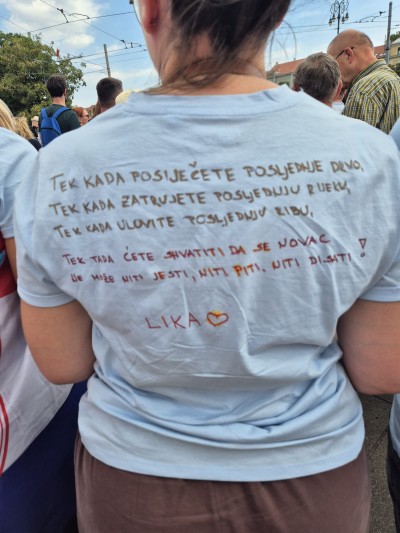 TEK KADA POSIJEČETE POSLJEDNJE DRVO,
TEK KADA ZATRUJETE POSLJEDNJU RIJEKU,
TEK KADA ULOVITE POSLJEDNJU RIBU,
TEK TADA ĆETE SHVATITI DA SE NOVAC
NE MOŽE NITI JESTI, NITI PITI. NITI DISATI!
LIKA